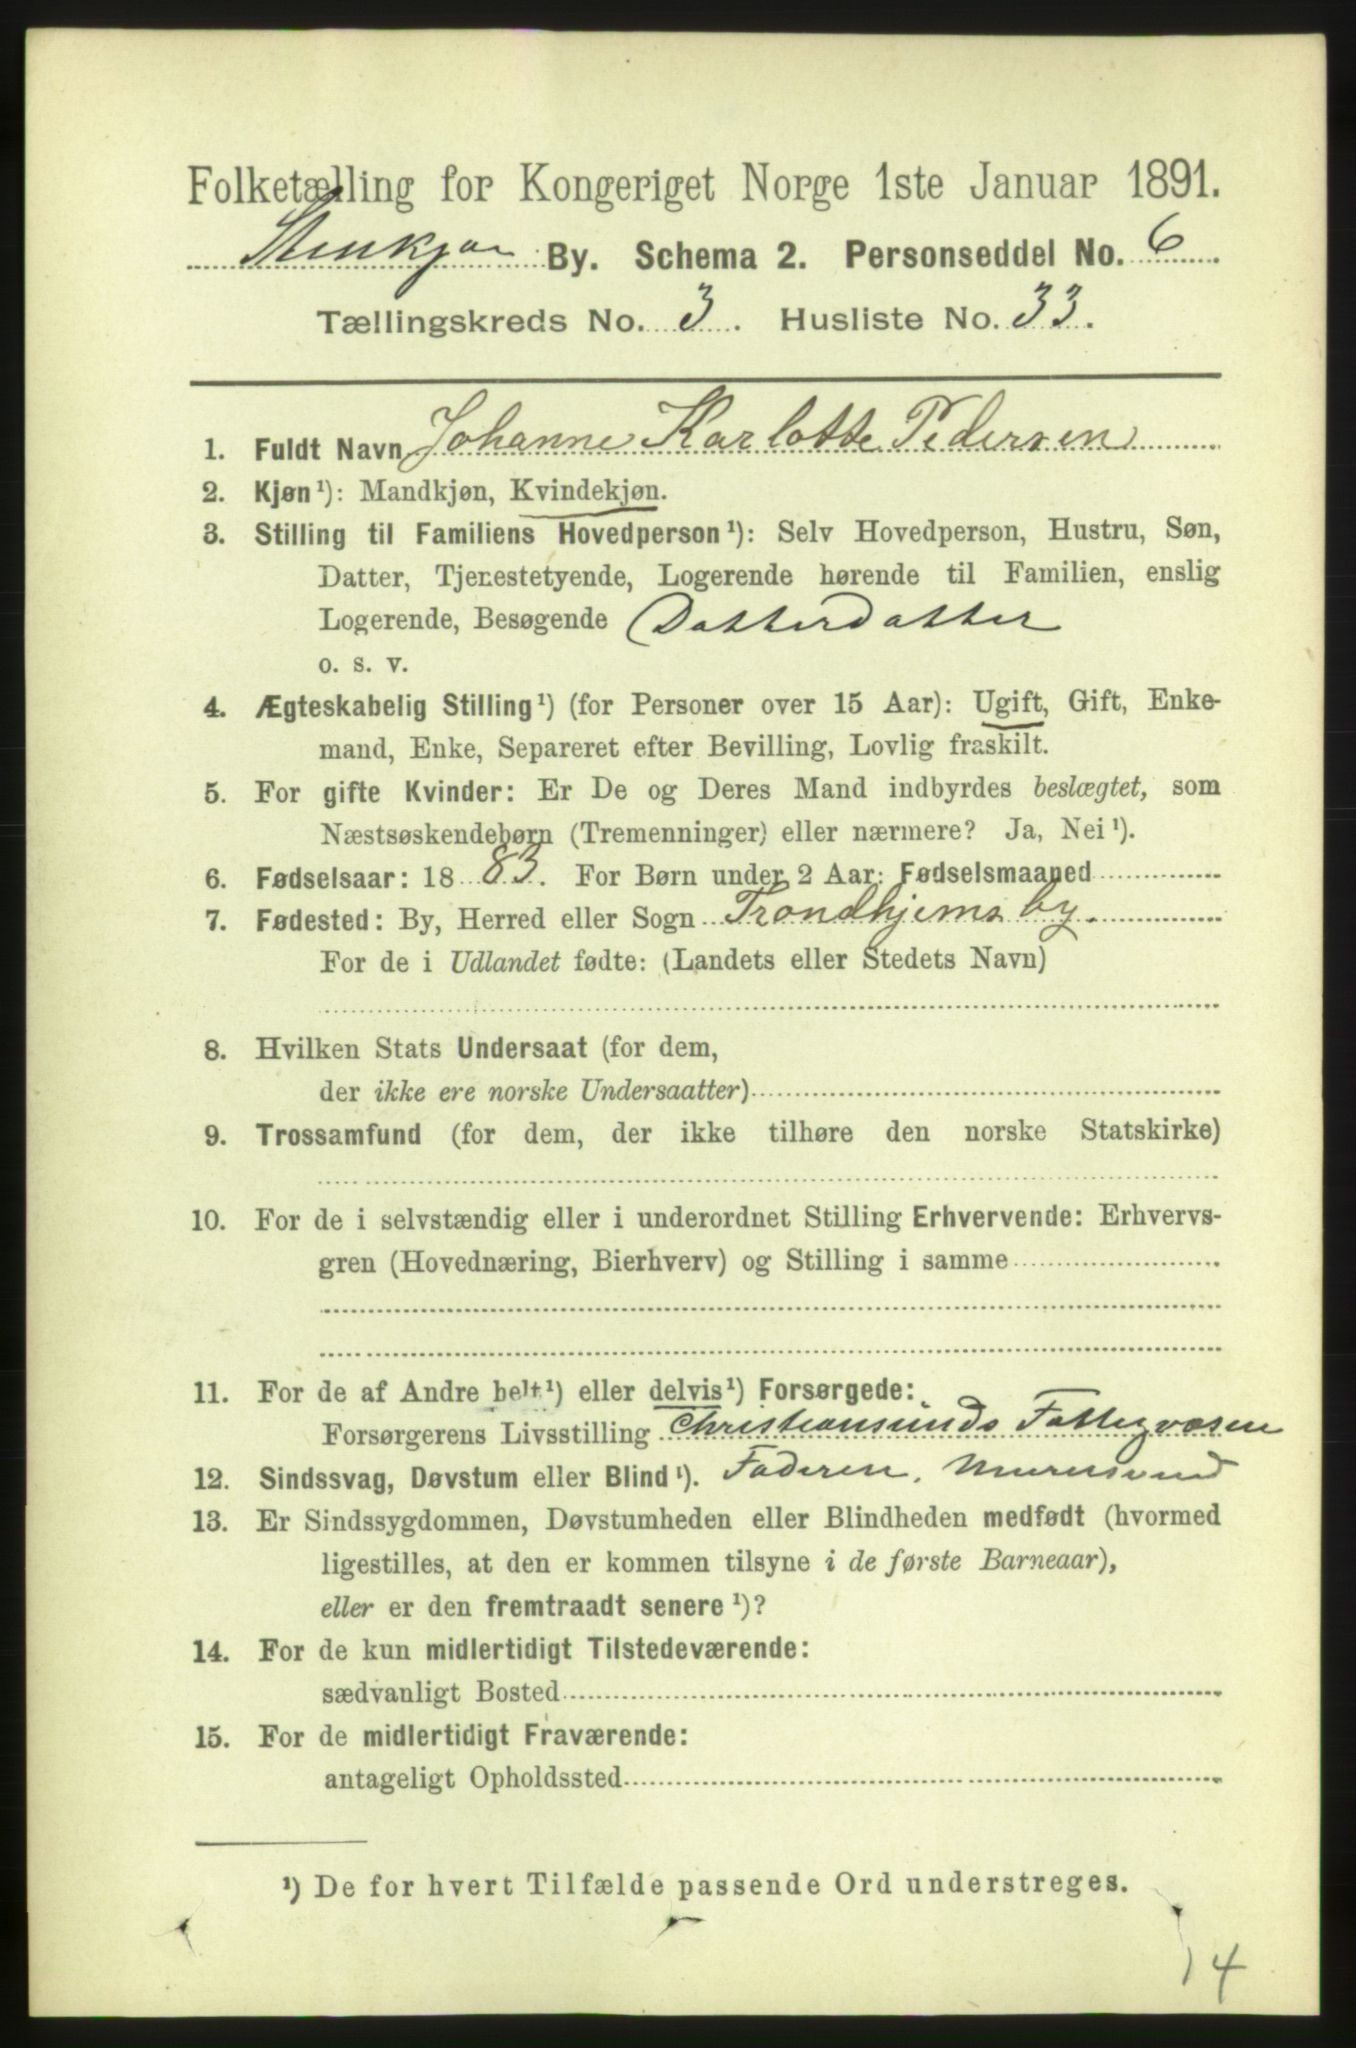 Folketælling for Kongeriget Norge 1ste Januar 1891.
Stenkjær By. Schema 2. Personseddel No. 6
Tællingskreds No. 3. Husliste No. 33.
1. Fuldt Navn Johanne Karlotte Pedersen
2. Kjøn¹): Mandkjøn, Kvindekjøn.
3. Stilling til Familiens Hovedperson¹): Selv Hovedperson, Hustru, Søn,
Datter, Tjenestetyende, Logerende hørende til Familien, enslig
Logerende, Besøgende Datterdatter
o. s. v.
4. Ægteskabelig Stilling¹) (for Personer over 15 Aar): Ugift, Gift, Enke-
mand, Enke, Separeret efter Bevilling, Lovlig fraskilt.
5. For gifte Kvinder: Er De og Deres Mand indbyrdes beslægtet, som
Næstsøskendebørn (Tremenninger) eller nærmere? Ja, Nei¹).
6. Fødselsaar: 1883. For Børn under 2 Aar: Fødselsmaaned
7. Fødested: By, Herred eller Sogn Trondhjems by.
For de i Udlandet fødte: (Landets eller Stedets Navn)
8. Hvilken Stats Undersaat (for dem,
der ikke ere norske Undersaatter)
9. Trossamfund (for dem, der ikke tilhøre den norske Statskirke)
10. For de i selvstændig eller i underordnet Stilling Erhvervende: Erhvervs-
gren (Hovednæring, Bierhverv) og Stilling i samme
11. For de af Andre helt¹) eller delvis¹) Forsørgede:
Forsørgerens Livsstilling Christiansunds Fattigvæsen
12. Sindssvag, Døvstum eller Blind¹). Faderen, Murersvend
13. Er Sindssygdommen, Døvstumheden eller Blindheden medfødt (hvormed
ligestilles, at den er kommen tilsyne i de første Barneaar),
eller er den fremtraadt senere¹)?
14. For de kun midlertidigt Tilstedeværende:
sædvanligt Bosted
15. For de midlertidigt Fraværende:
antageligt Opholdssted
¹) De for hvert Tilfælde passende Ord understreges.
14